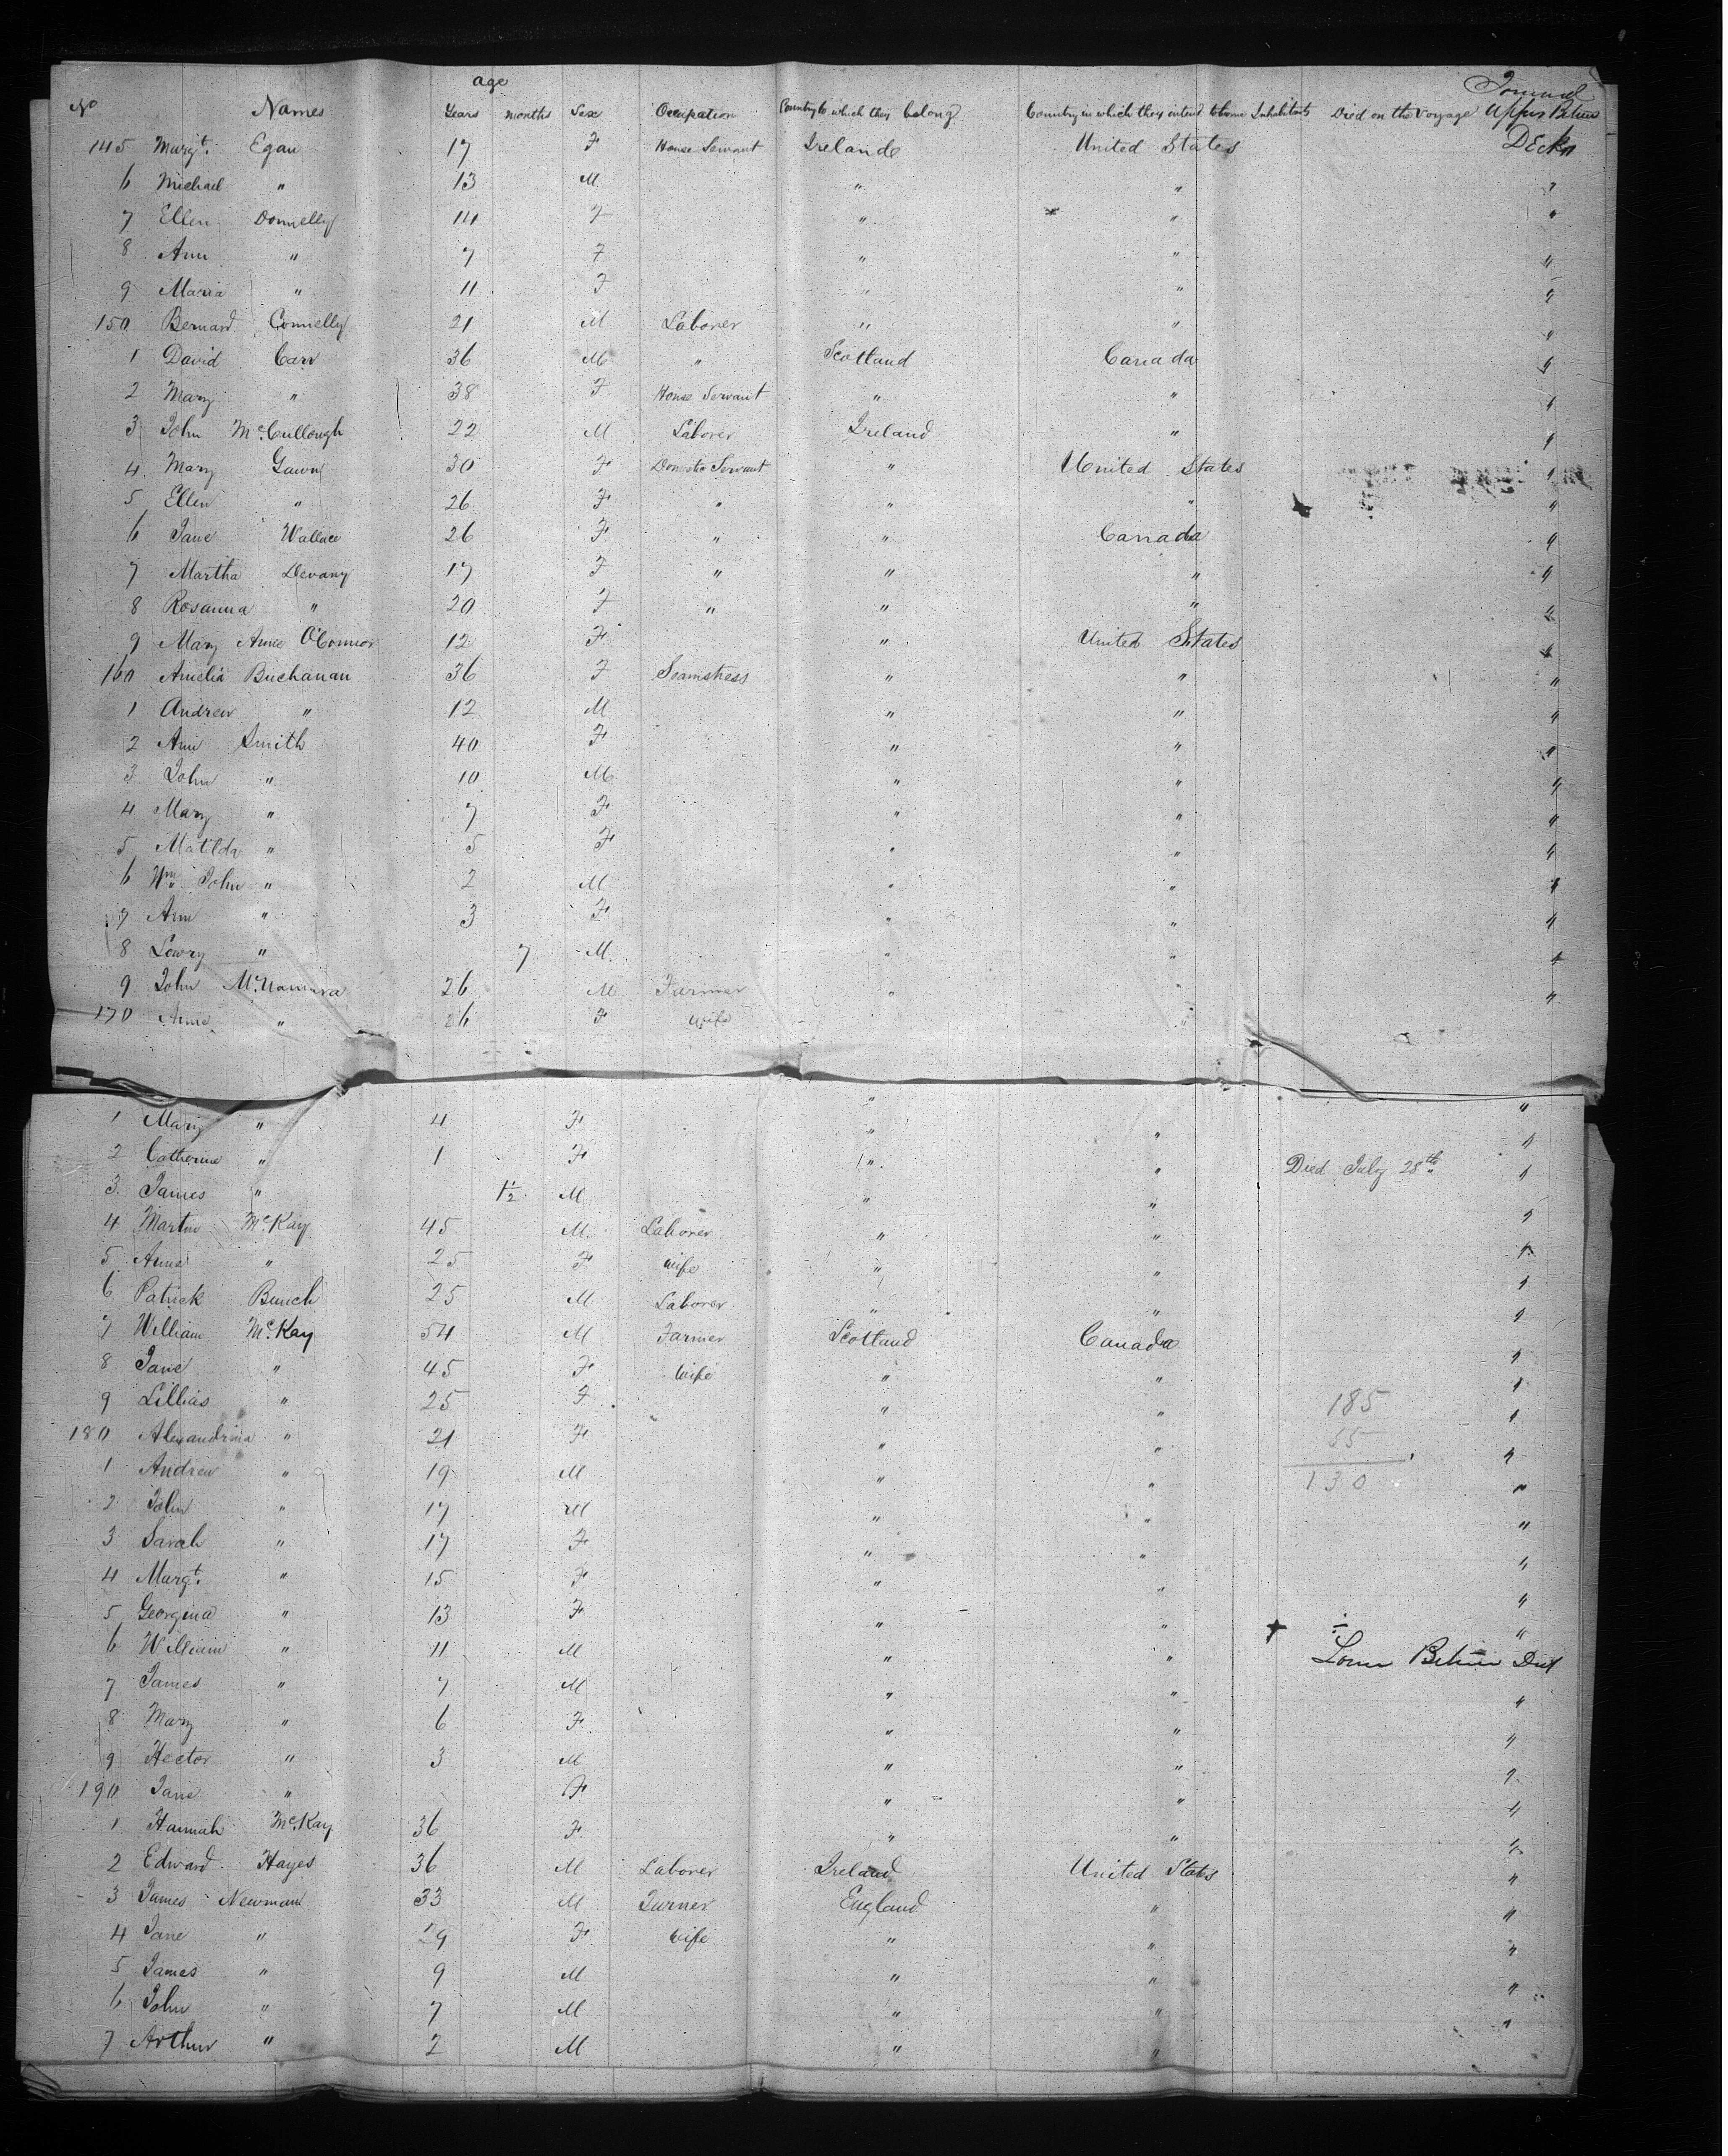 age
No Names Years months Sex Occupation Country to which they belong Country in which they intend to become Inhabitants Died on the Voyage Upper Betwn
Deck
145 Margt. Egan 17 F House Servant Ireland United States
6 Michael " 13 M " " "
7 Ellen Donnelly 14 F " " "
8 Ann " 7 F " " "
9 Maria " 11 F " " "
150 Bernard Connelly 21 M Laborer " " "
1 David Carr 36 M " Scotland Canada "
2 Mary " 38 F House Servant " " "
3 John McCullough 22 M Laborer Ireland " "
4 Mary Gawn 30 F Domestic Servant " United States "
5 Ellen " 26 F " " " "
6 Jane Wallace 26 F " " Canada "
7 Martha Devany 17 F " " " "
8 Rosanna " 20 F " " " "
9 Mary Anne O'Connor 12 F " United States "
160 Amelia Buchanan 36 F Seamstress " " "
1 Andrew " 12 M " " "
2 Ann Smith 40 F " " "
3 John " 10 M " " "
4 Mary " 7 F " " "
5 Matilda " 5 F " " "
6 Wm. John " 2 M " " "
7 Ann " 3 F " " "
8 Lowry " 7 M " " "
9 John McNamara 26 M Farmer " " "
170 Anne " 26 F Wife "
1 Mary " 4 F " " "
2 Catherine " 1 F " " "
3 James " 1½ M " " Died July 28th "
4 Martin McKay 45 M. Laborer " " "
5 Anne " 25 F Wife " " "
6 Patrick Bunch 25 M Laborer " " "
7 William McKay 54 M Farmer Scotland Canada "
8 Jane " 45 F Wife " " "
9 Lillias " 25 F " " "
185
180 Alexandrina " 21 F " " "
55
1 Andrew " 19 M " " "
130
2 John " 17 M " " "
3 Sarah " 17 F " " "
4 Margt. " 15 F " " "
5 Georgina " 13 F " " "
6 William " 11 M " " Lower Betwn Deck
7 James " 7 M " " "
8 Mary " 6 F " " "
9 Hector " 3 M " " "
190 Jane " F " " "
1 Hannah McKay 36 F " " "
2 Edward Hayes 36 M Laborer Ireland United States "
3 James Newman 33 M Turner England " "
4 Jane " 29 F Wife " " "
5 James " 9 M " " "
6 John " 7 M " " "
7 Arthur " 2 M " "